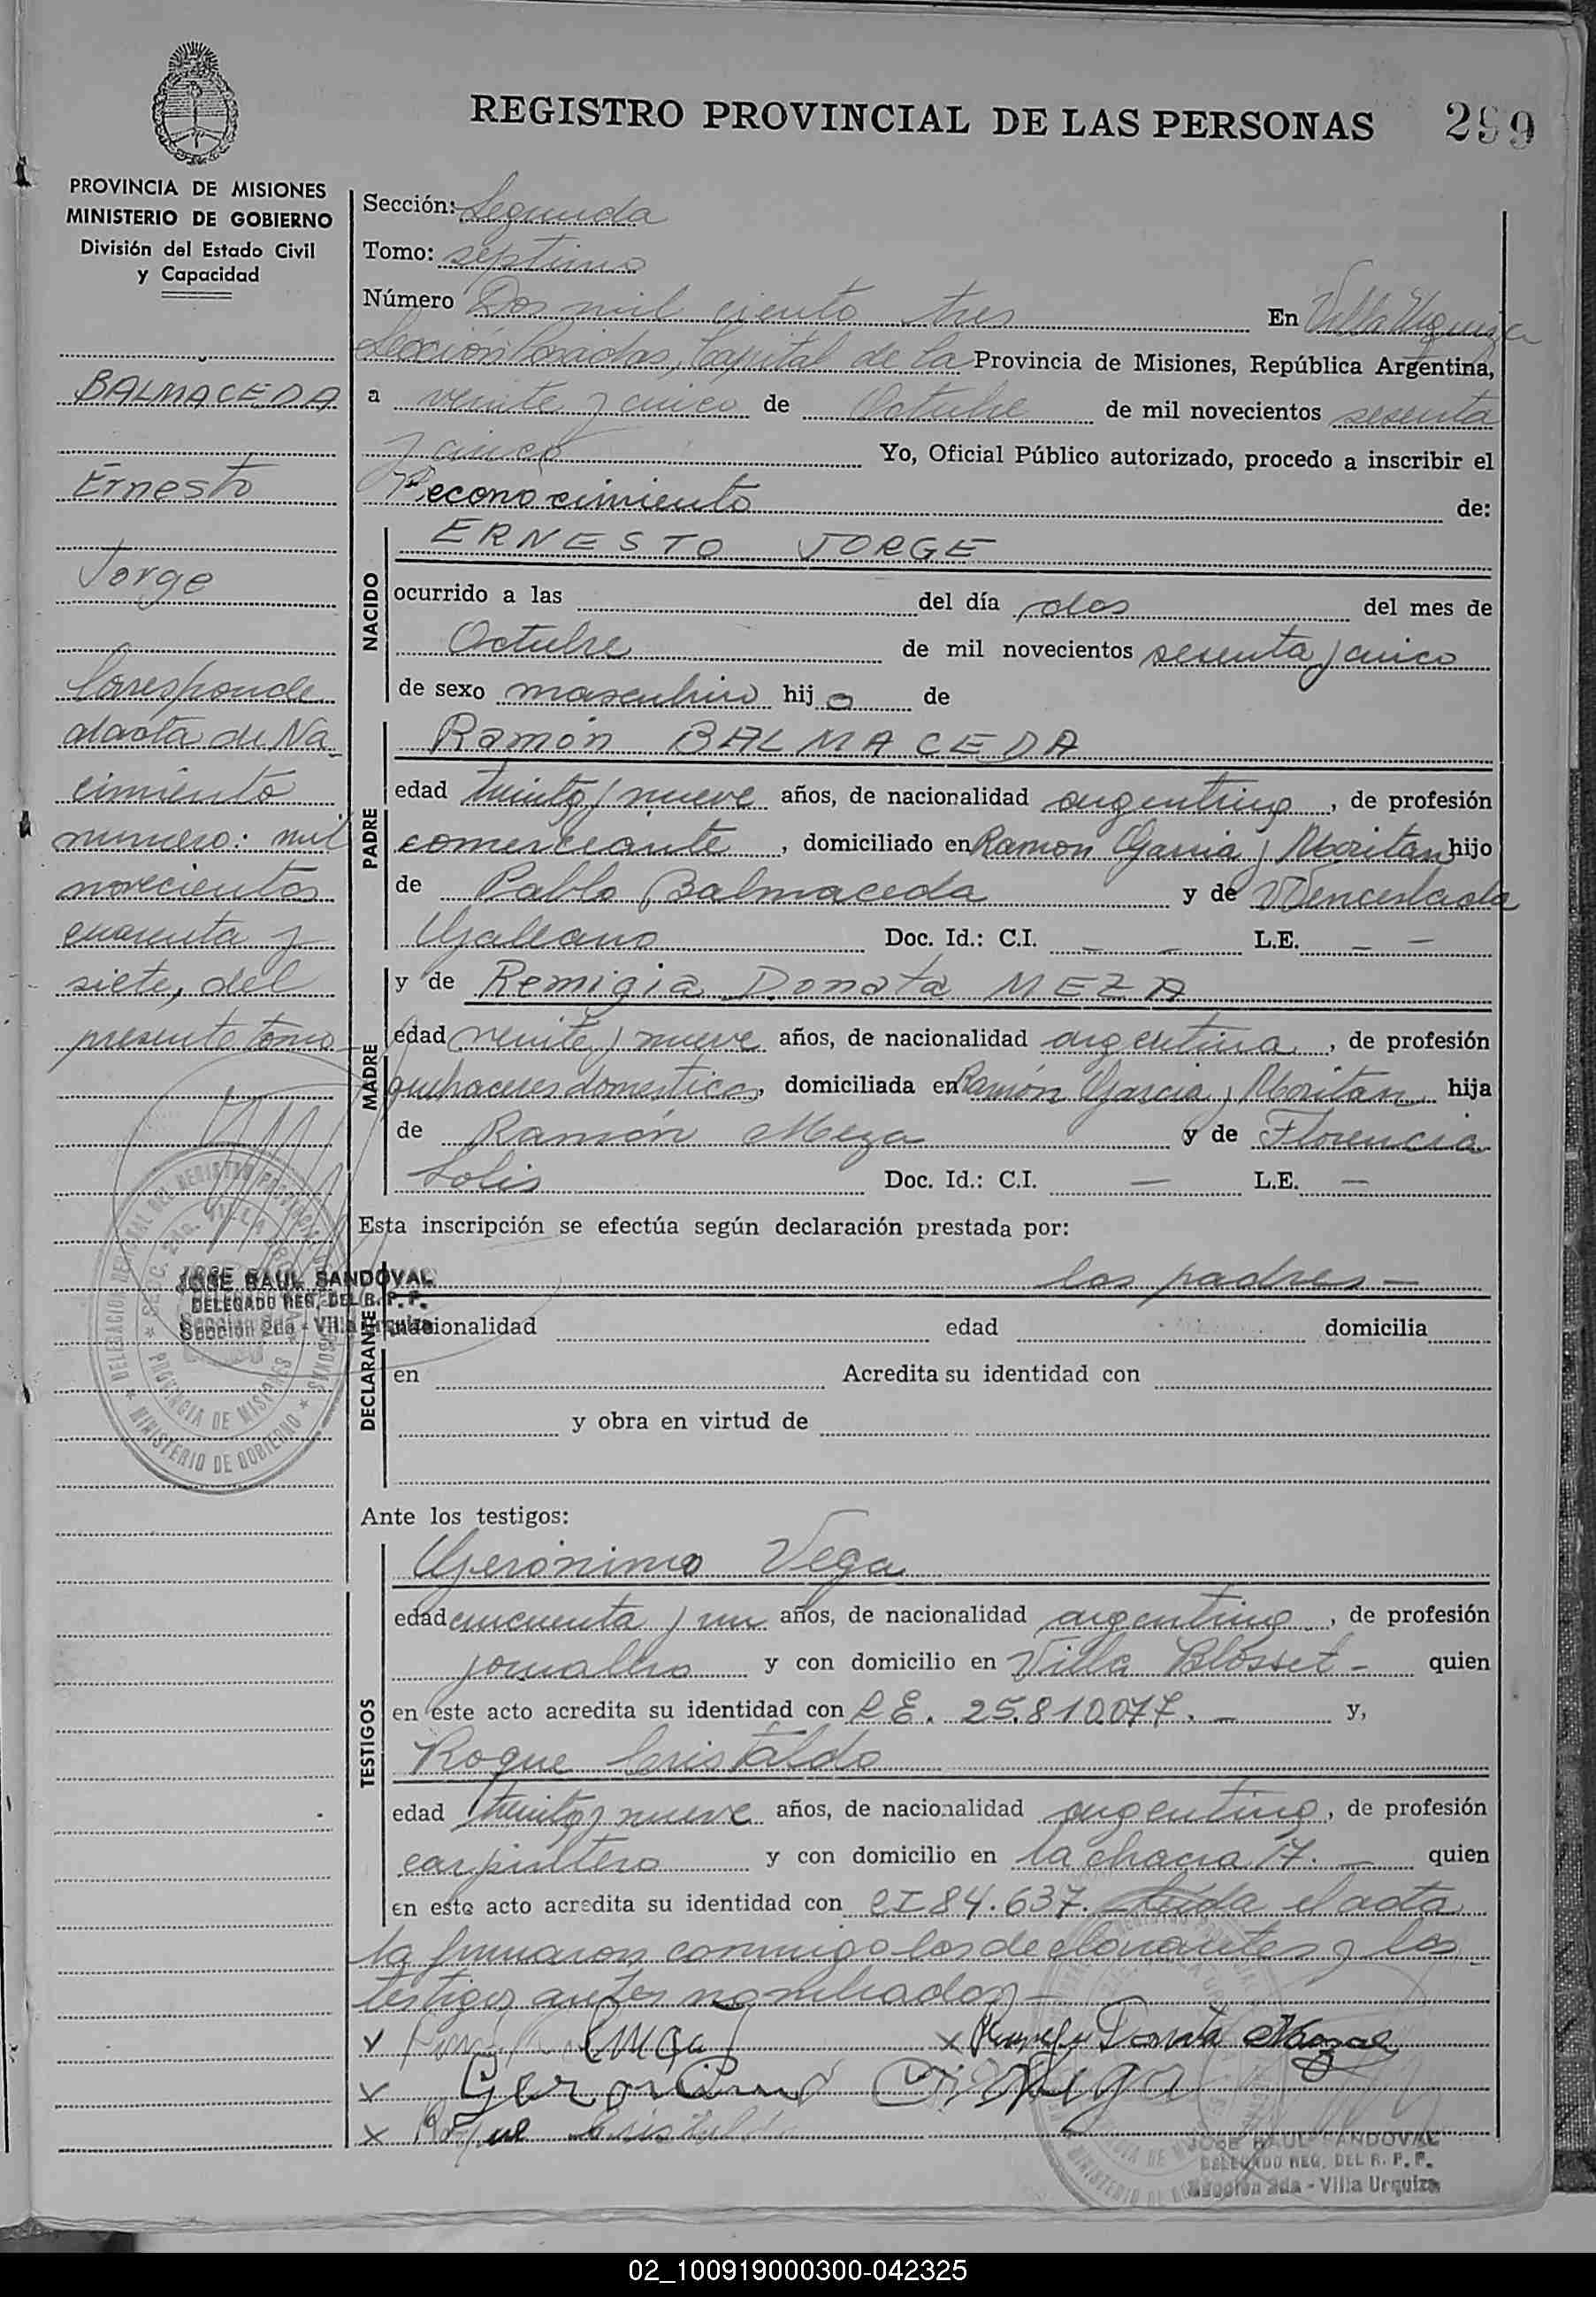 REGISTRO PROVINCIAL DE LAS PERSONAS 299
PROVINCIA DE MISIONES
MINISTERIO DE GOBIERNO
División del Estado Civil
y Capacidad
BALMACEDA
Ernesto
Jorge
Corresponde
al acta de Na
cimiento
numero: mil
novecientos
cuarenta y
siete, del
presente tomo
JOSE RAUL SANDOVAL
DELEGADO REG. DEL R. P. P.
Sección 2da - Villa Urquiza
Sección: Segunda
Tomo: septimo
Número Dos mil ciento tres En Villa Urquiza
Sección Posadas, Capital de la Provincia de Misiones, República Argentina,
a veinte y cinco de Octubre de mil novecientos sesenta
y cinco Yo, Oficial Público autorizado, procedo a inscribir el
Reconocimiento de:
NACIDO
ERNESTO JORGE
ocurrido a las del día dos del mes de
Octubre de mil novecientos sesenta y cinco
de sexo masculino hijo de
PADRE
Ramón BALMACEDA
edad treinta y nueve años, de nacionalidad argentino, de profesión
comerciante, domiciliado en Ramon Garcia y Moritan hijo
de Pablo Balmaceda y de Wenceslada
Galeano Doc. Id.: C.I. – – L.E. – –
MADRE
y de Remigia Donata MEZA
edad veinte y nueve años, de nacionalidad argentina, de profesión
quehaceres domesticos, domiciliada en Ramón Garcia y Moritan hija
de Ramón Meza y de Florencia
Solis Doc. Id.: C.I. – L.E. –
Esta inscripción se efectúa según declaración prestada por:
DECLARANTE
los padres –
nacionalidad edad domicilia
en Acredita su identidad con
y obra en virtud de
Ante los testigos:
TESTIGOS
Gerónimo Vega
edad cincuenta y un años, de nacionalidad argentino, de profesión
jornalero y con domicilio en Villa Blosset – quien
en este acto acredita su identidad con L.E. 25.810.077. – y,
Roque Cristaldo
edad treinta y nueve años, de nacionalidad argentino, de profesión
carpintero y con domicilio en la chacra 17. – quien
en este acto acredita su identidad con CI 84.637. Leida el acta
la firmaron conmigo los declarantes y los
testigos antes nombrados –
x x Donata
x Geronimo Vega
x Roque Cristaldo
JOSE RAUL SANDOVAL
DELEGADO REG. DEL R. P. P.
Sección 2da - Villa Urquiza
02_100919000300-042325